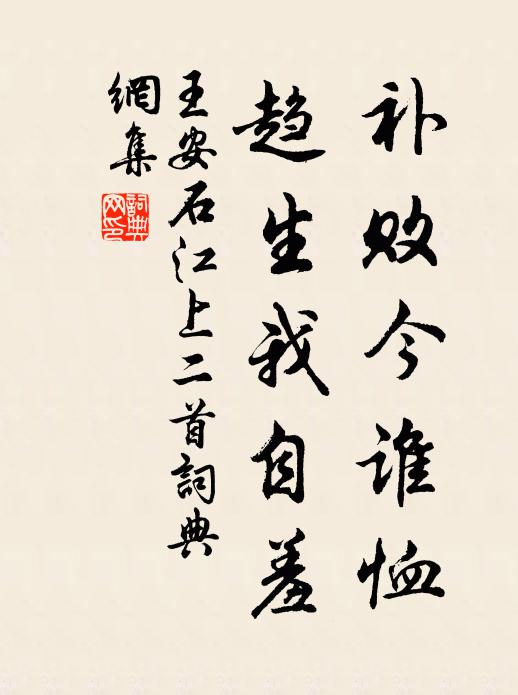 补败今谁恤
趋生我自羞
王安石江上二首詞典
網集
詞典
网印